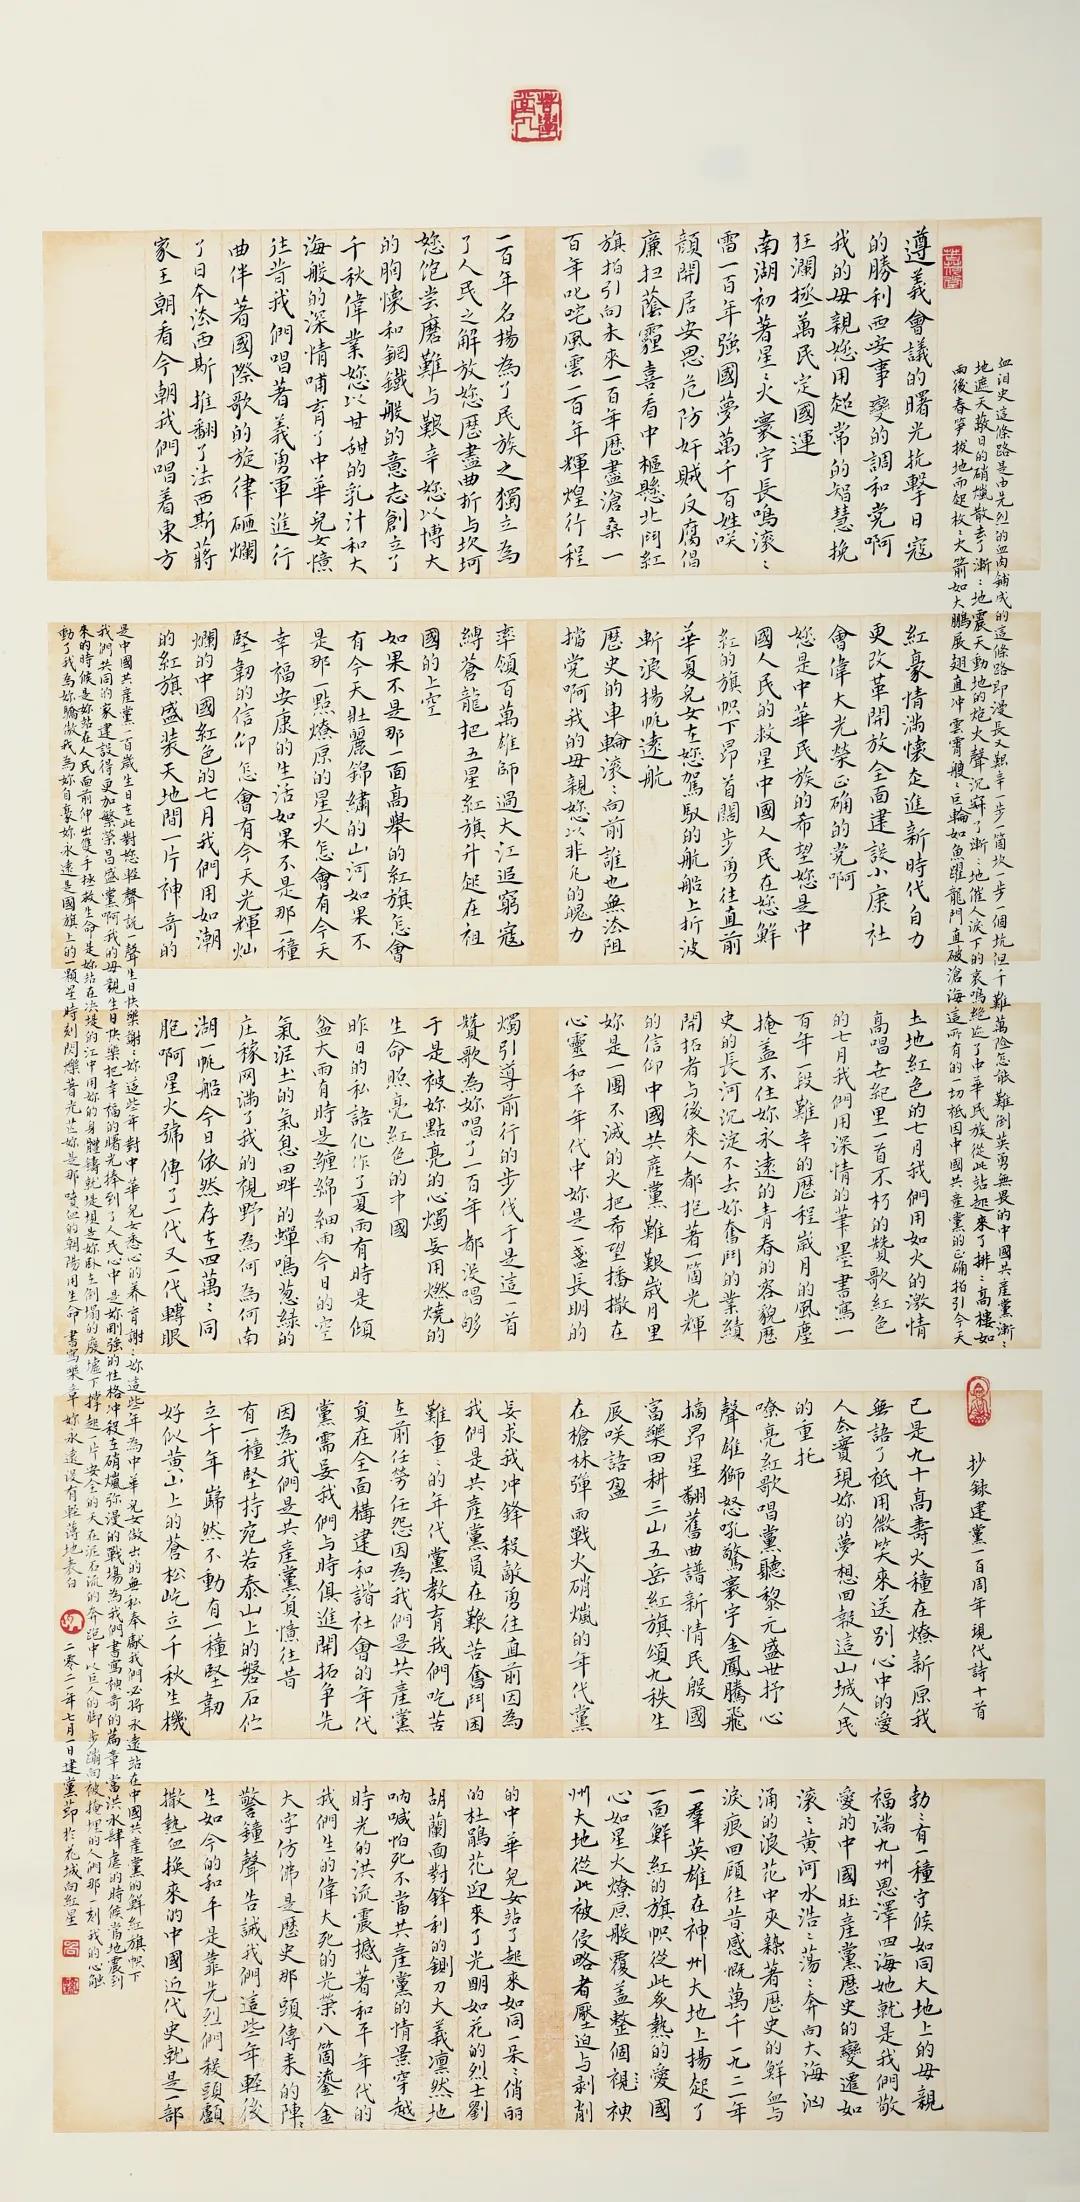 遵義會議的曙光抗擊日寇
的勝利西安事變的調和党啊
我的母親您用超常的智慧挽
狂瀾拯萬民定國運
南湖初著星ミ火寰宇長鳴滚ミ
雷一百年強國夢萬千百姓咲
顔開居安思危防奸賊反腐倡
廉扫蔭霾喜看中樞懸北鬥紅
旗指引向未來一百年歷盡滄桑一
百年叱咤風雲一百年輝煌行程
一百年名揚為了民族之獨立為
了人民之解放您歷盡曲折与坎坷
您飽尝磨難与艱辛您以博大
的胸懷和鋼鐵般的意志創立了
千秋偉業您以甘甜的乳汁和大
海般的深情哺育了中華兒女憶
往昔我們唱著義勇軍進行
曲伴著國際歌的旋律砸爛
了日本法西斯推翻了法西斯蔣
家王朝看今朝我們唱着東方
紅豪情滿懷走進新時代自力
更改革開放全面建設小康社
會偉大光榮正确的党啊
您是中華民族的希望您是中
國人民的救星中國人民在您鮮
紅的旗帜下昂首闊步勇往直前
華夏兒女在您駕馭的航船上折波
斬浪揚帆遠航
歷史的車輪滚ミ向前誰也無法阻
擋党啊我的母親您以非凡的魄力
率領百萬雄師過大江追窮寇
縛蒼龍把五星紅旗升起在祖
國的上空
如果不是那一面高舉的紅旗怎會
有今天壯麗錦繡的山河如果不
是那一點燎原的星火怎會有今天
幸福安康的生活如果不是那一種
堅韌的信仰怎會有今天光輝灿
爛的中國紅色的七月我們用如潮
的紅旗盛装天地間一片神奇的
土地紅色的七月我們用如火的激情
高唱世紀里一首不朽的贊歌紅色
的七月我們用深情的筆墨書寫一
百年一段難辛的歷程歲月的風塵
掩盖不住妳永遠的青春的容貌歷
史的長河沉淀不去妳奮鬥的業績
開拓者与後來人都抱著一箇光輝
的信仰中國共産黨難艱歲月里
妳是一團不滅的火把希望播撒在
心靈和平年代中妳是一盞長明的
燭引導前行的步伐于是這一首
贊歌為妳唱了一百年都没唱够
于是被妳點亮的心燭要用燃燒的
生命照亮紅色的中國
昨日的私語化作了夏雨有時是傾
盆大雨有時是纏綿細雨今日的空
氣涯土的氣息田畔的蟬鳴葱緑的
庄稼网满了我的視野為何為何南
湖一帆船今日依然存在四萬ミ同
胞啊星火號傳了一代又一代轉眼
已是九十高壽火種在燎新原我
無語了衹用微笑来送别心中的愛
人民實現妳的夢想回報這山城人民
的重托
嘹亮紅歌唱黨聽黎元盛世抒心
聲雄獅怒吼驚寰宇金鳳騰飛
摘昂星翻舊曲譜新情民殷國
富樂田耕三山五岳紅旗頌九秩生
辰咲語盈
在槍林彈雨戰火硝煙的年代黨
要求我冲鋒殺敵勇往直前因為
我們是共産黨員在艱苦奮鬥困
難重ミ的年代黨教育我們吃苦
在前任勞任怨因為我們是共産黨
員在全面構建和諧社會的年代
黨需要我們与時俱進開拓争先
因為我們是共産黨員憶往昔
有一種堅持宛若泰山上的磐石伫
立千年巋然不動有一種堅韌
好似黄山上的蒼松屹立千秋生機
勃ミ有一種守候如同大地上的母親
福満九州恩澤四海她就是我們敬
愛的中國共産黨歷史的變遷如
滚ミ黄河水浩ミ蕩ミ奔向大海汹
涌的浪花中夹雜著歷史的鮮血与
淚痕回顧往昔感慨萬千一九二一年
一羣英雄在神州大地上揚起了
一面鮮紅的旗帜從此炙熱的愛國
心如星火燎原般覆盖整個視神
州大地從此被侵略者壓迫与剥削
的中華兒女站了起來如同一朵ミ俏丽
的杜鵑花迎來了光明如花的烈士劉
胡蘭面對鋒利的鍘刀大義凛然地
呐喊怕死不當共産黨的情景穿越
時光的洪流震撼著和平年代的
我們生的偉大死的光榮八箇鎏金
大字仿佛是歷史那頭傳来的陣ミ
警鐘聲告誡我們這些年輕後
生如今的和平是靠先烈們抛頭顱
撒熱血换來的中國近代史就是一部
血泪史這條路是由先烈的血肉鋪成的這條路即漫長又艱辛一步一箇坎一步一個坑但千難萬險怎能難倒英勇無畏的中國共産黨漸ミ
地遮天蔽日的硝煙散去了漸ミ地震天動地的炮火聲沉寂了漸ミ地催人淚下的哀鳴绝迹了中華民族從此站起來了排ミ高樓如
雨後春筍拔地而起枚ミ火箭如大鵬展翅直冲雲霄艘ミ巨輪如魚躍龍門直破滄海這所有的一切衹因中國共産黨的正确指引今天
是中國共産黨一百歲生日在此對您輕聲説一聲生日快樂謝ミ妳這些年對中華兒女悉心的养育謝ミ妳這些年為中華兒女做出的無私奉獻我們必將永遠站在中國共産黨的鮮紅旗帜下
我們共同的家建設得更加繁榮昌盛黨啊我的母親生日快樂把幸福的曙光捧到了人民心中是妳剛強的性格冲殺在硝煙弥漫的戰場為我們書寫神奇的篇章當洪水肆虐的時候當地震到
来的時候是妳站在人民面前伸出雙手拯救生命是妳站在决堤的江中用妳的身體鑄就堤壩是妳卧在倒塌的廢墟下撑起一片安全的天在泥石流的奔跑中以巨人的脚步踊向被掩埋的人們那一刻我的心触
動了我為妳驕傲我為妳自豪妳永遠是國旗上的一顆星時刻閃爍著光芒妳是那噴血的朝陽用生命書寫樂章妳永遠没有輕薄地表白
抄録建黨一百周年現代詩十首
二零二一年七月一日建黨節於花城向紅星